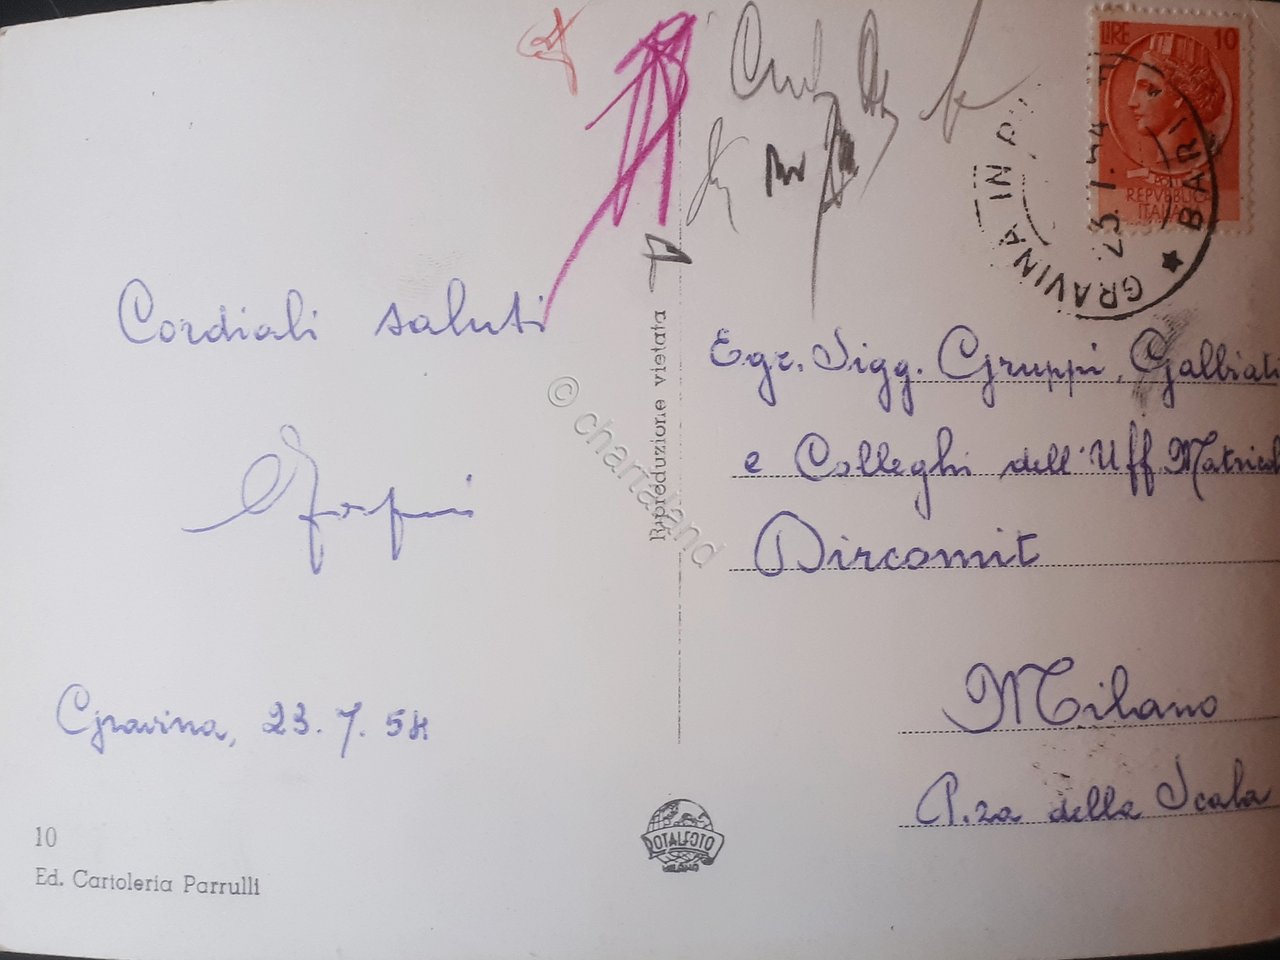 LIRE 10
POSTE
REPVBBLICA
ITALIANA
GRAVINA IN PU
BARI
23.7.54
Cordiali saluti
Gravina, 23.7.54
10
Ed. Cartoleria Parrulli
Riproduzione vietata
© chartaland
ROTALFOTO
MILANO
Egr. Sigg. Gruppi, Galbiati
e Colleghi dell'Uff. Matricol
Dircomit
Milano
P.za della Scala